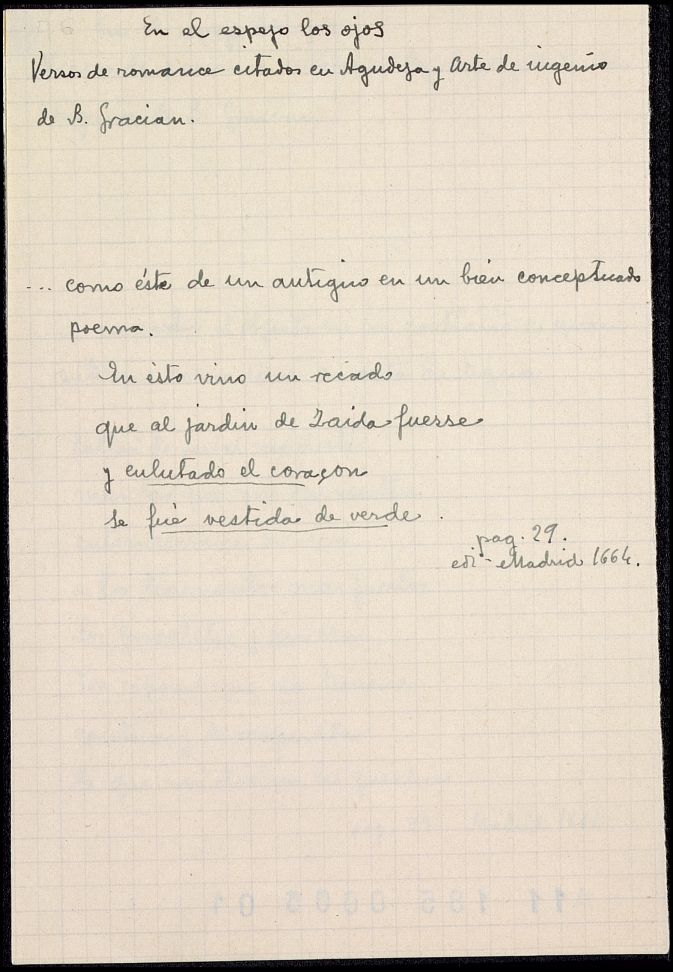 En el espejo los ojos
Versos de romance citados en Agudeza y Arte de ingenio
de B. Gracian.
... como éste de un antiguo en un bien conceptuado
poema.
En ésto vino un recado
que al jardin de Zaida fuesse
y enlutado el coraçon
se fué vestida de verde.
pag. 29.
edi- Madrid 1664.